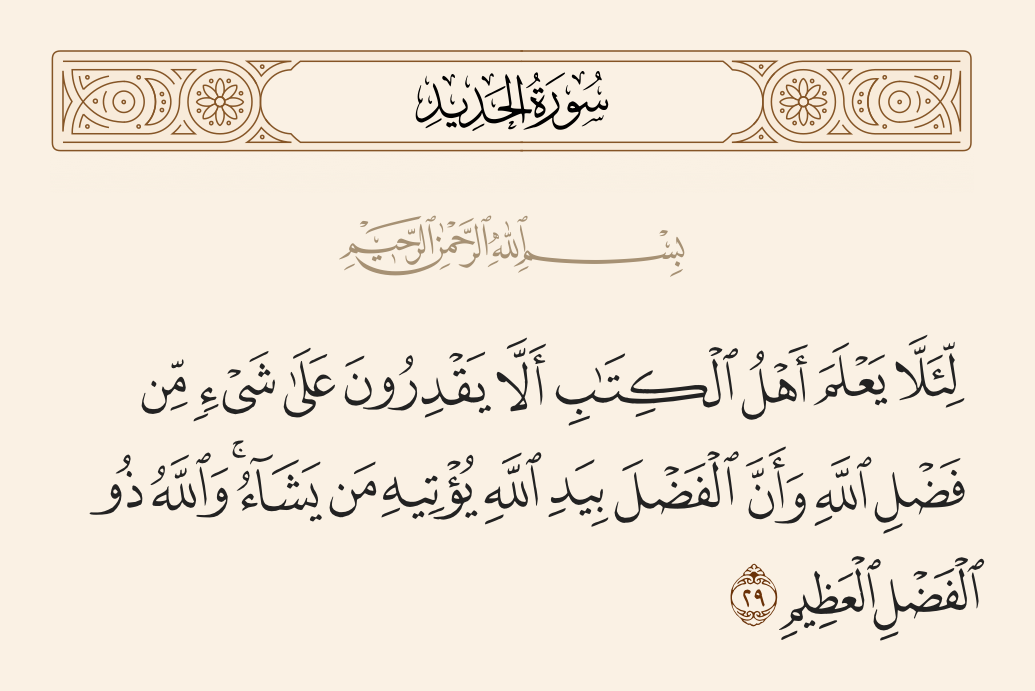 سُورَةُ الحَدِيدِ
بِسْمِ ٱللَّهِ ٱلرَّحْمَٰنِ ٱلرَّحِيمِ
لِّئَلَّا يَعْلَمَ أَهْلُ ٱلْكِتَٰبِ أَلَّا يَقْدِرُونَ عَلَىٰ شَىْءٍ مِّن
فَضْلِ ٱللَّهِ وَأَنَّ ٱلْفَضْلَ بِيَدِ ٱللَّهِ يُؤْتِيهِ مَن يَشَآءُ ۚ وَٱللَّهُ ذُو
ٱلْفَضْلِ ٱلْعَظِيمِ ٢٩